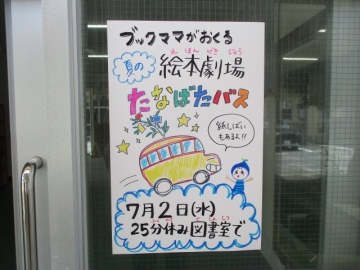 ブックママがおくる
夏の 絵本劇場
えほんげきじょう
たなばたバス
紙しばい
もあるよ!!
7月2日(水)
25分休み図書室で